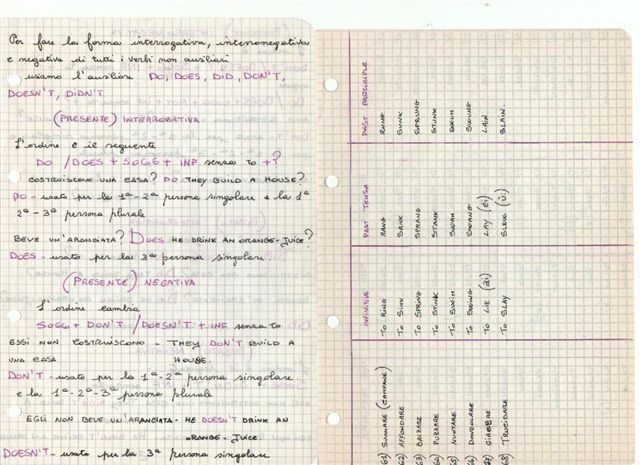 Per fare la forma interrogativa, interronegativa
e negativa di tutti i verbi non ausiliari
usiamo l'ausiliare DO, DOES, DID, DON'T,
DOESN'T, DIDN'T.
(PRESENTE) INTERROGATIVA
L'ordine è il seguente
DO / DOES + SOGG + INF senza to + ?
COSTRUISCONO UNA CASA? DO THEY BUILD A HOUSE?
DO - usato per la 1ª - 2ª persona singolare e la 1ª
2ª - 3ª persona plurale
BEVE UN'ARANCIATA? DOES HE DRINK AN ORANGE-JUICE?
DOES - usato per la 3ª persona singolare
(PRESENTE) NEGATIVA
L'ordine cambia
SOGG + DON'T / DOESN'T + INF senza to
ESSI NON COSTRUISCONO - THEY DON'T BUILD A
UNA CASA HOUSE.
DON'T - usato per la 1ª - 2ª persona singolare
e la 1ª - 2ª - 3ª persona plurale
EGLI NON BEVE UN'ARANCIATA - HE DOESN'T DRINK AN
ORANGE-JUICE.
DOESN'T - usato per la 3ª persona singolare
INFINITIVE PAST TENSE PAST PARTICIPLE
61) SUONARE (CAMPANE) TO RING RANG RUNG
62) AFFONDARE TO SINK SANK SUNK
63) BALZARE TO SPRING SPRANG SPRUNG
64) PUZZARE TO STINK STANK STUNK
65) NUOTARE TO SWIM SWAM SWUM
66) DONDOLARE TO SWING SWANG SWUNG
67) GIACERE TO LIE (ai) LAY (èi) LAIN
68) TRUCIDARE TO SLAY SLEW (ù) SLAIN